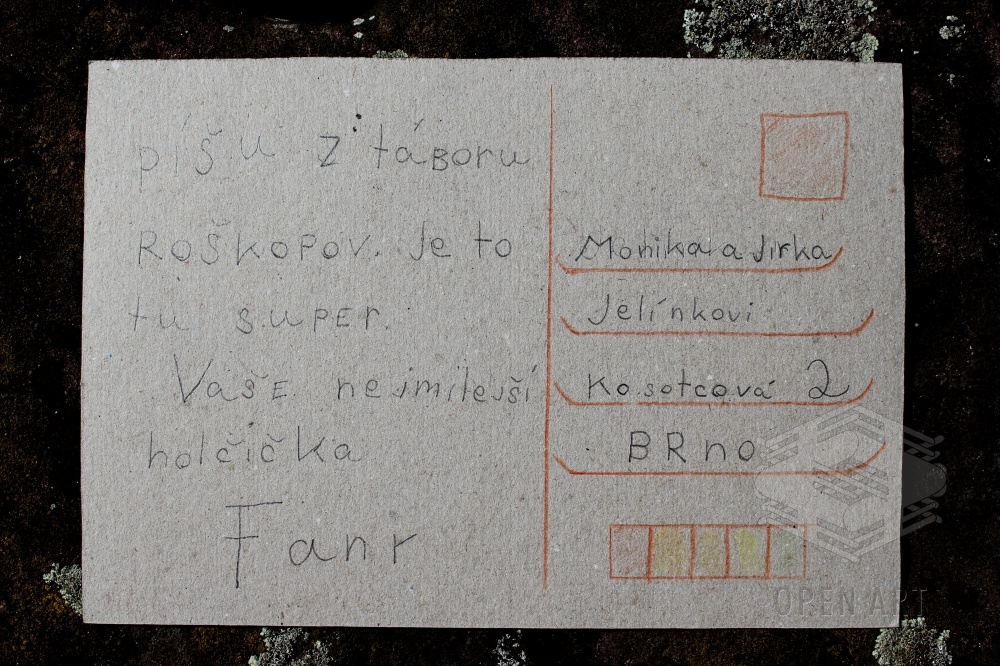 píšu z táboru
ROŠKOPOV. Je to
tu super.
Vaše nejmilejší
holčička
Fanr
Monika a Jirka
Jelínkovi
Kosatcová 2
BRno
OPEN ART